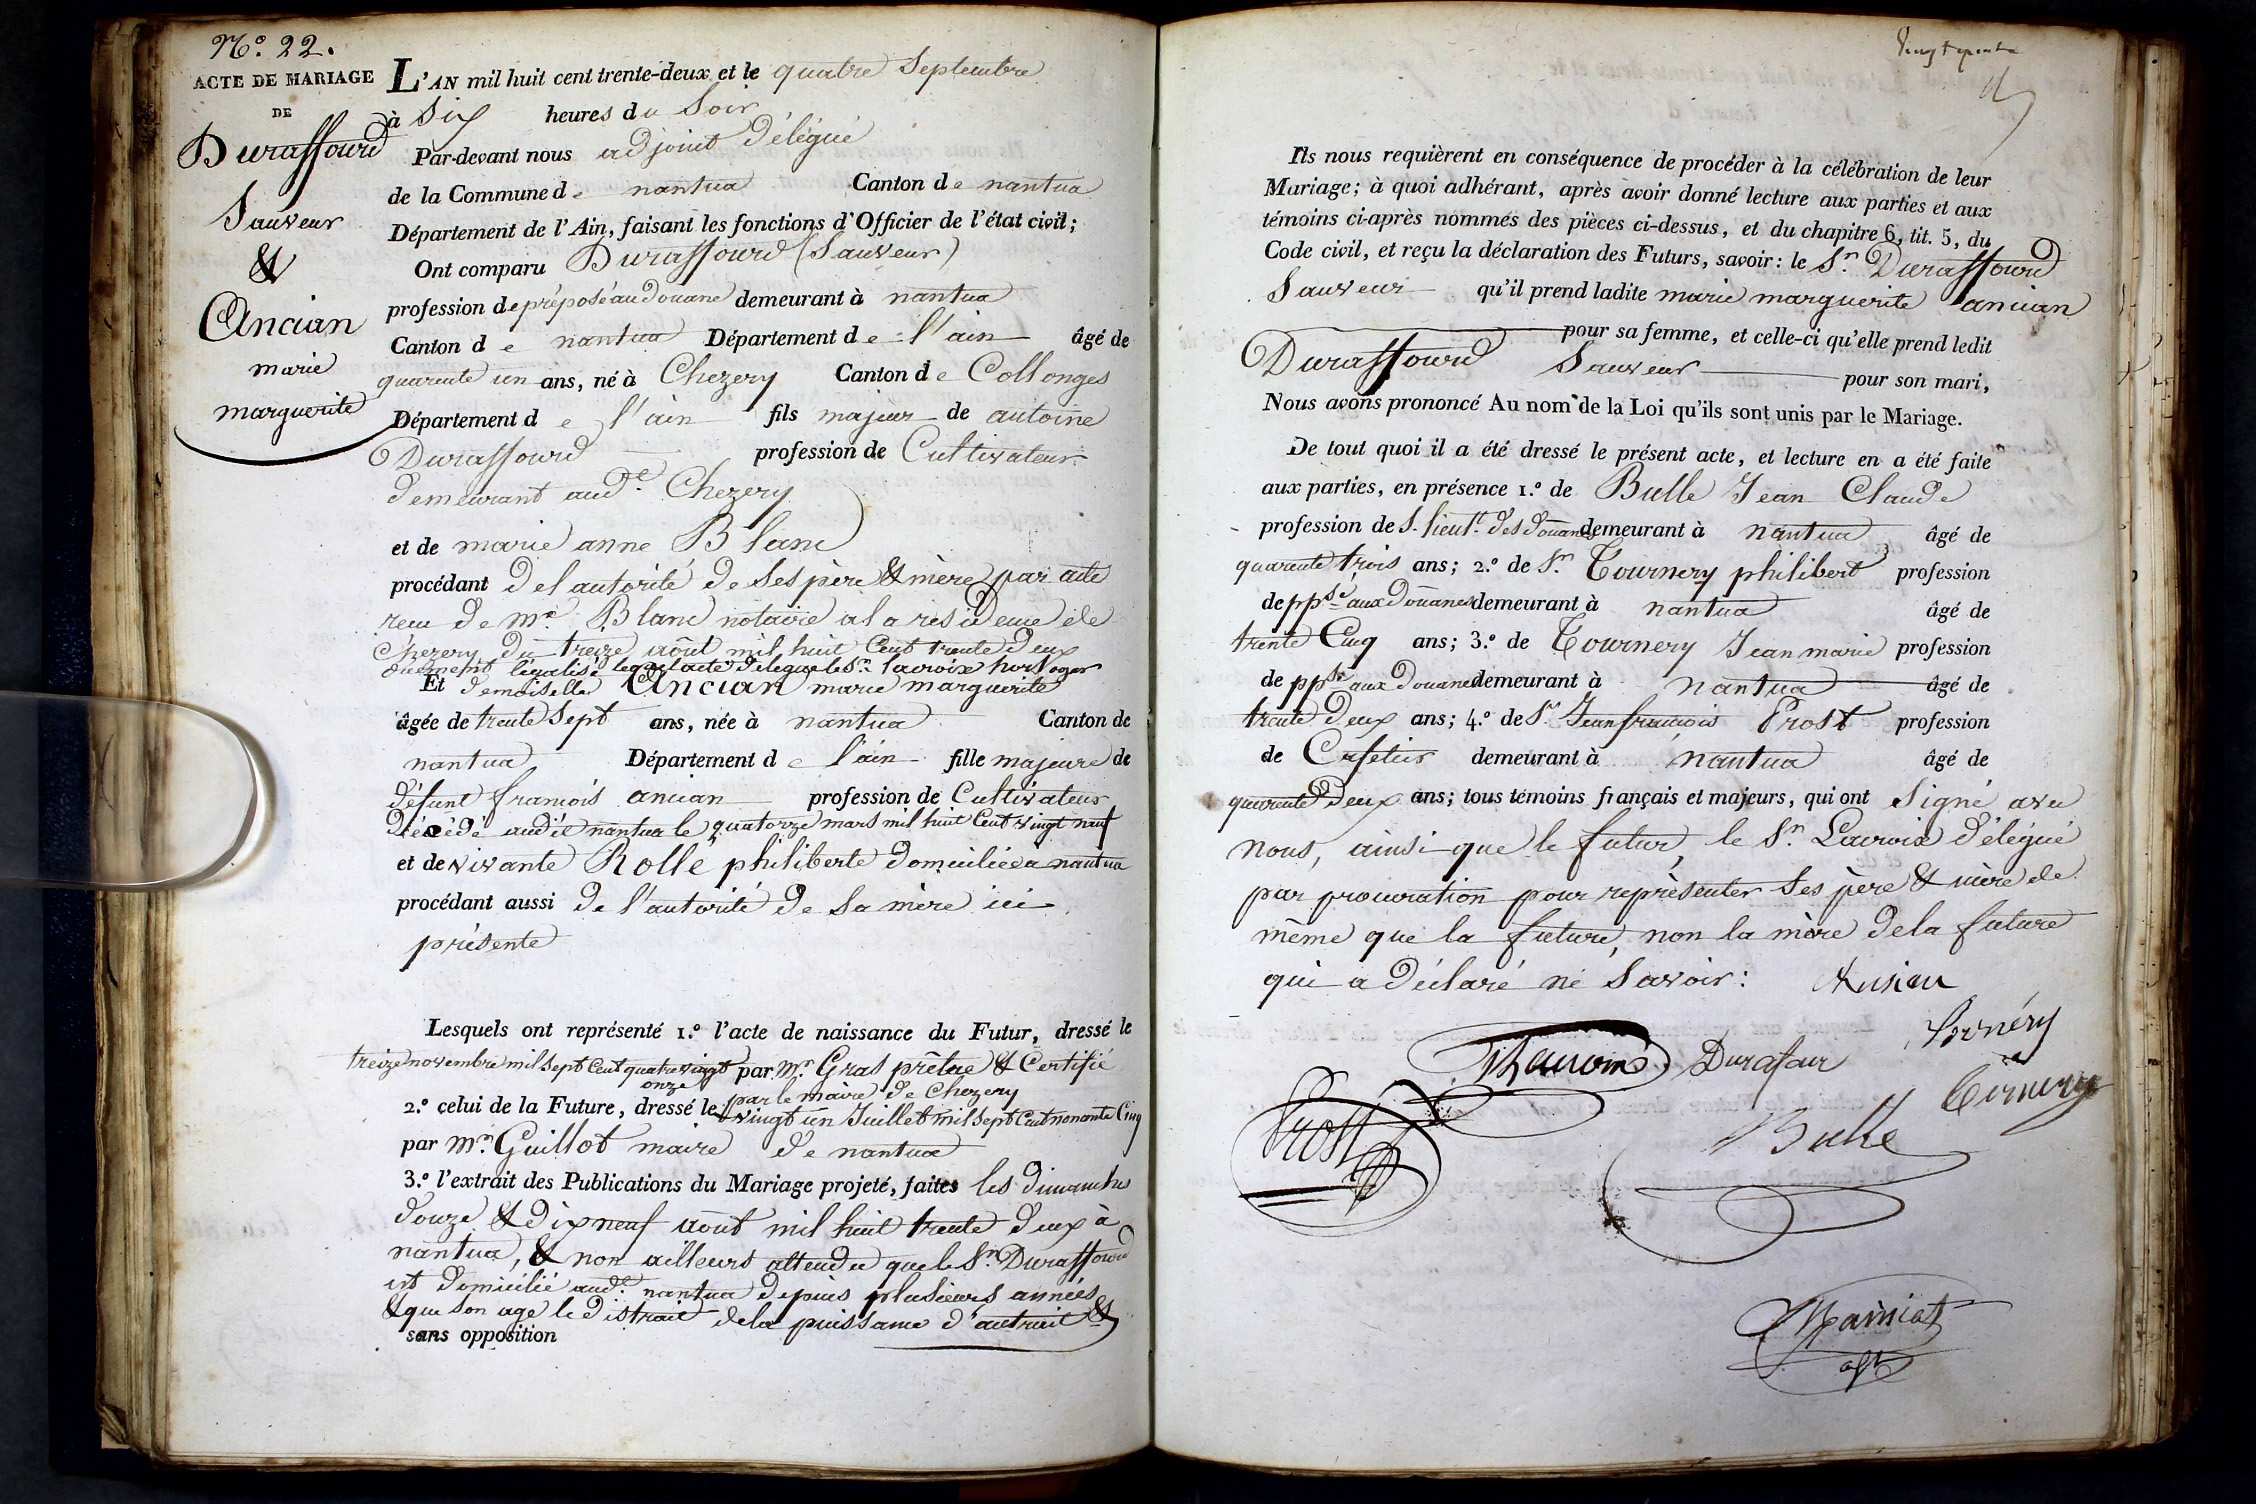 N.° 22.
ACTE DE MARIAGE
DE
Durassourd
Sauveur
&
Ancian
marie
marguerite
L'AN mil huit cent trente-deux et le quatre Septembre
à Six heures du Soir
Par-devant nous adjoint délégué
de la Commune de nantua Canton de nantua
Département de l'Ain, faisant les fonctions d'Officier de l'état civil;
Ont comparu Durassourd (Sauveur)
profession de préposé au douane demeurant à nantua
Canton de nantua Département de l'ain âgé de
quarente un ans, né à Chezery Canton de Collonges
Département de l'ain fils majeur de antoine
Durassourd profession de Cultivateur
demeurant aud.t Chezery
et de marie anne Blanc
procédant de l'autorité de Ses père & mère par acte
recu de m.e Blanc notaire à la residence de
Chezery du treize août mil huit Cent trente deux
duement légalisé lequel acte délègue le S.r lacroix horloger
Et demoiselle Ancian marie marguerite
âgée de trente Sept ans, née à nantua Canton de
nantua Département de l'ain fille majeure de
défunt francois ancian profession de Cultivateur
décédé audit nantua le quatorze mars mil huit Cent vingt neuf
et de vivante Rolle philiberte domiciliée à nantua
procédant aussi de l'autorité de Sa mère ici
présente
Lesquels ont représenté 1.° l'acte de naissance du Futur, dressé le
treize novembre mil Sept Cent quatre vingt onze par M.r Gras prêtre & Certifié
par le maire de Chezery
2.° celui de la Future, dressé le vingt un Juillet mil Sept Cent nonante Cinq
par M.r Guillot maire de nantua
3.° l'extrait des Publications du Mariage projeté, faites les dimanches
douze & dix neuf août mil huit trente deux à
nantua, & non ailleurs attendu que le S.r Durassourd
est domicilié aud.t nantua depuis plusieurs années
& que son age le distrait de la puissance d'autruit &
sans opposition
Ils nous requièrent en conséquence de procéder à la célébration de leur
Mariage; à quoi adhérant, après avoir donné lecture aux parties et aux
témoins ci-après nommés des pièces ci-dessus, et du chapitre 6, tit. 5, du
Code civil, et reçu la déclaration des Futurs, savoir: le S.r Durassourd
Sauveur qu'il prend ladite marie marguerite ancian
pour sa femme, et celle-ci qu'elle prend ledit
Durassourd Sauveur pour son mari,
Nous avons prononcé Au nom de la Loi qu'ils sont unis par le Mariage.
De tout quoi il a été dressé le présent acte, et lecture en a été faite
aux parties, en présence 1.° de Bulle Jean Claude
profession de S. lieut.t des douanes demeurant à nantua âgé de
quarente trois ans; 2.° de S.r Tournery philibert profession
de pp.sé aux douanes demeurant à nantua âgé de
trente Cinq ans; 3.° de Tournery Jean marie profession
de pp.sé aux douanes demeurant à nantua âgé de
trente deux ans; 4.° de S.r Jean francois Prost profession
de Cafetier demeurant à nantua âgé de
quarente deux ans; tous témoins français et majeurs, qui ont Signé avec
nous, ainsi que le futur, le S.r Lacroix délégué
par procuration pour représenter Ses père & mère de
même que la future, non la mère de la future
qui a déclaré ne Savoir:
Durafour
Prost
Bulle